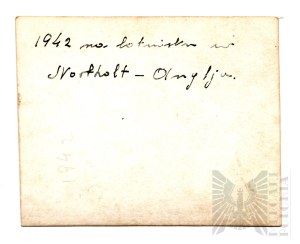 1942 na lotnisku w
Northolt - Anglja.
1942